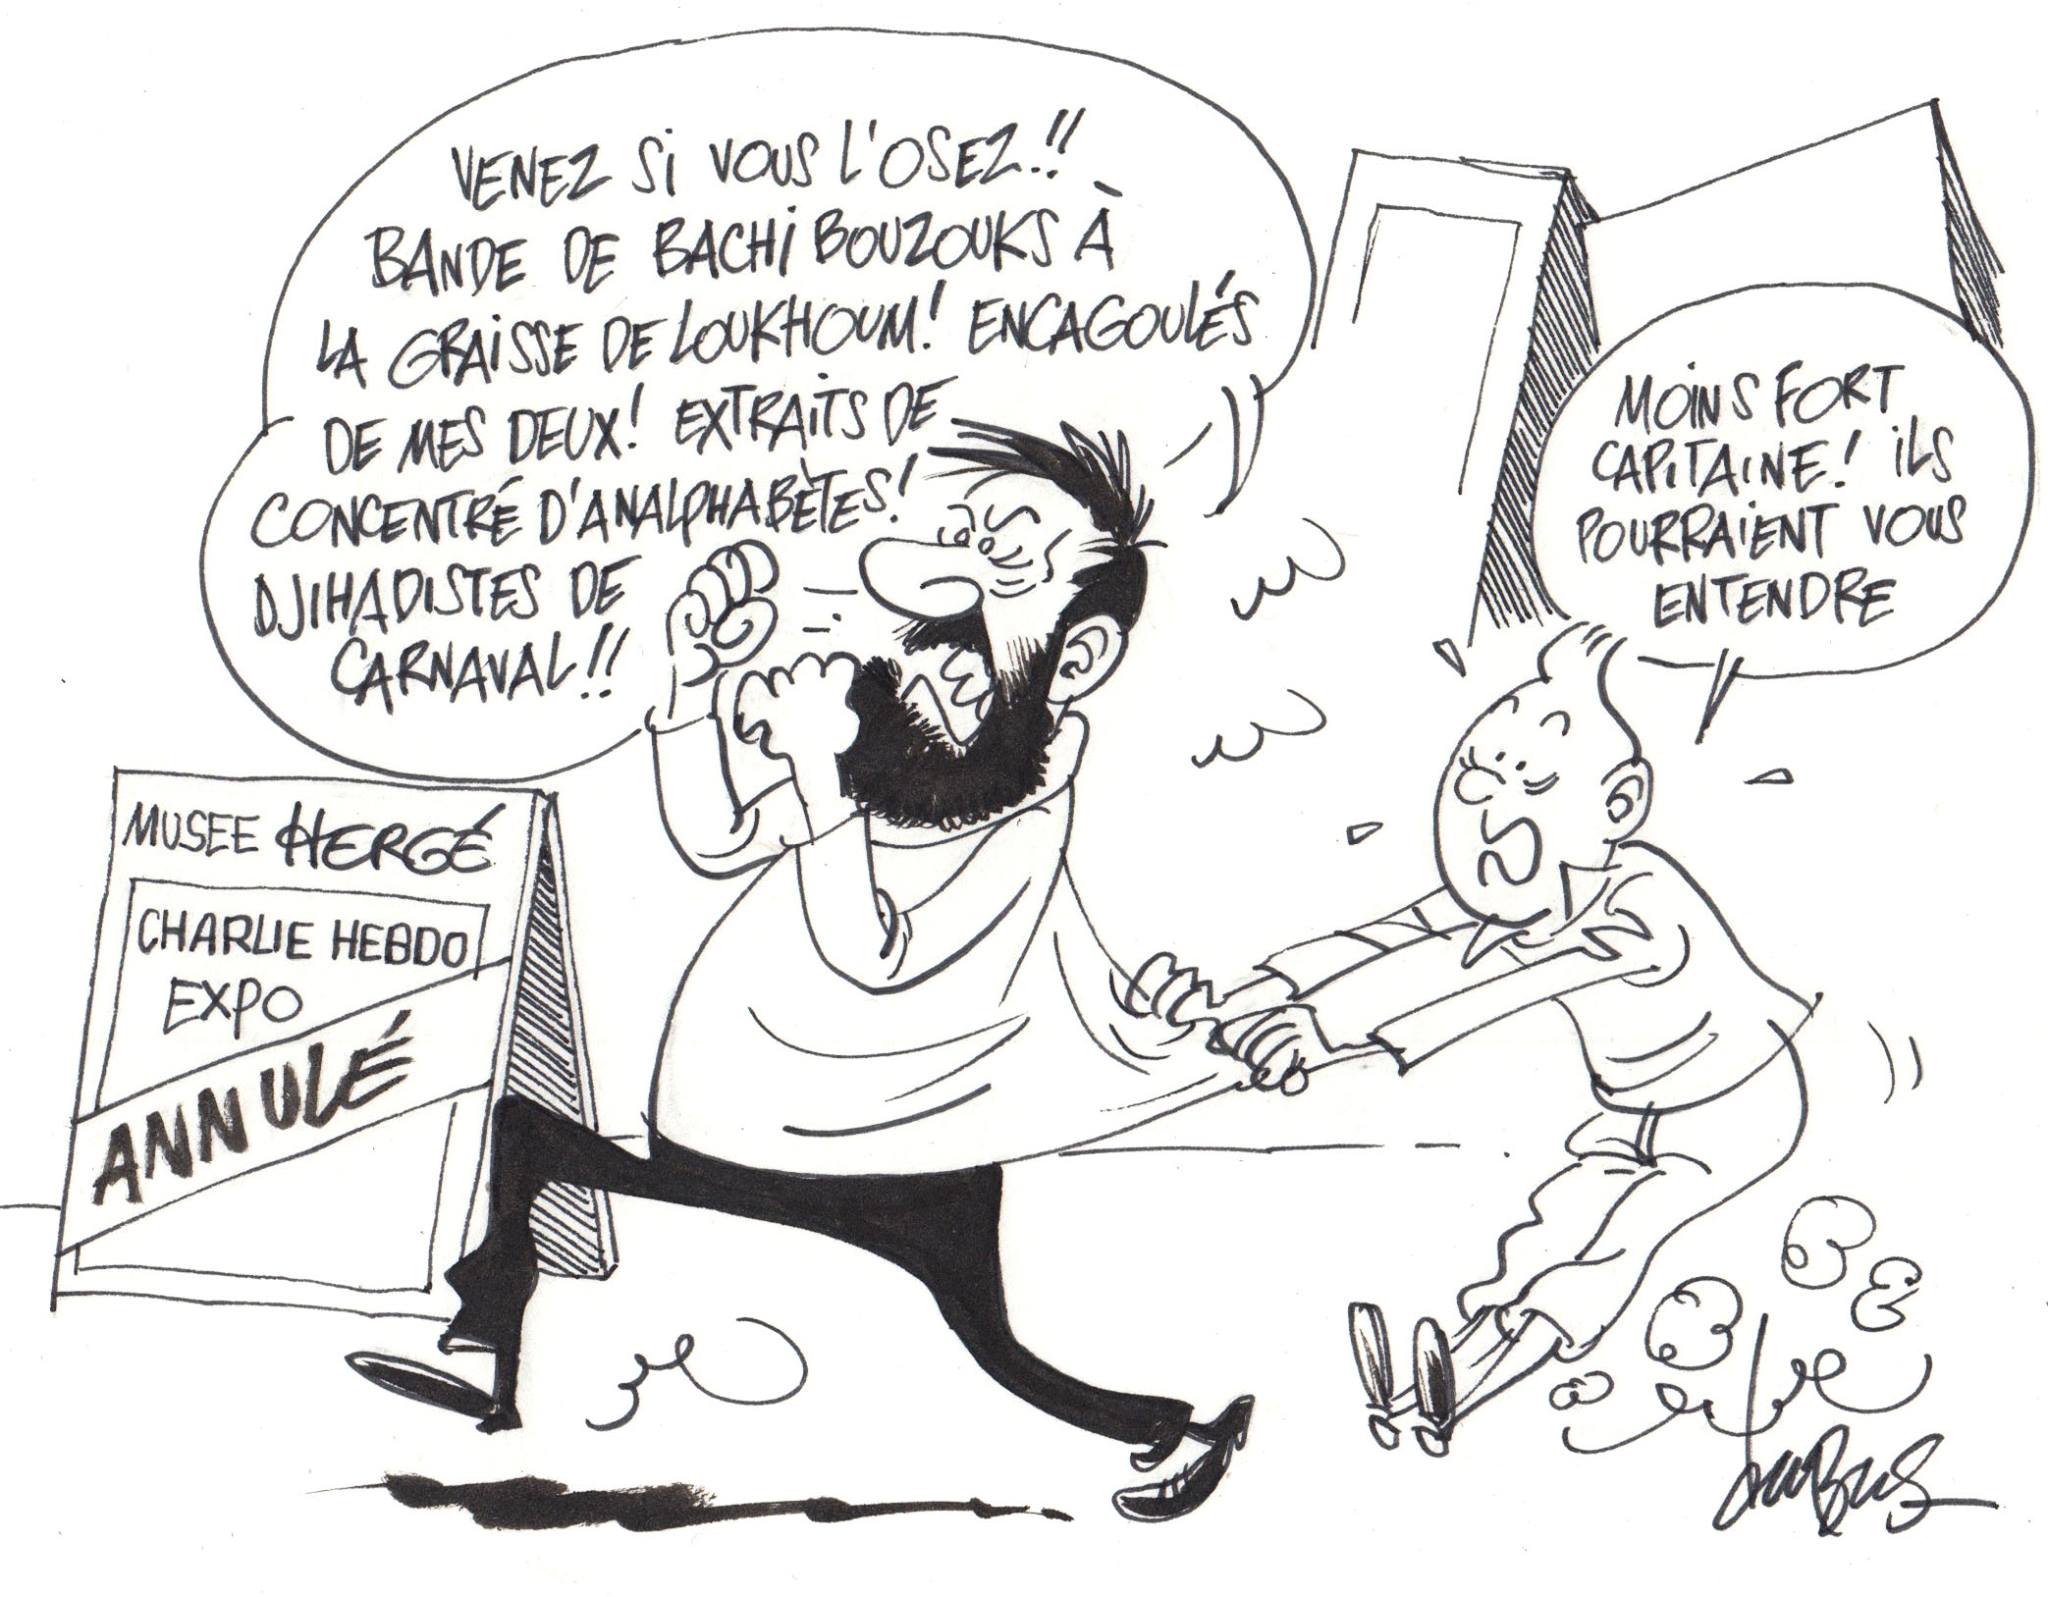 VENEZ SI VOUS L'OSEZ!!
BANDE DE BACHI BOUZOUKS À
LA GRAISSE DE LOUKHOUM! ENCAGOULÉS
DE MES DEUX! EXTRAITS DE
CONCENTRÉ D'ANALPHABÈTES!
DJIHADISTES DE
CARNAVAL!!
MOINS FORT
CAPITAINE! ILS
POURRAIENT VOUS
ENTENDRE
MUSEE HERGÉ
CHARLIE HEBDO
EXPO
ANNULÉ